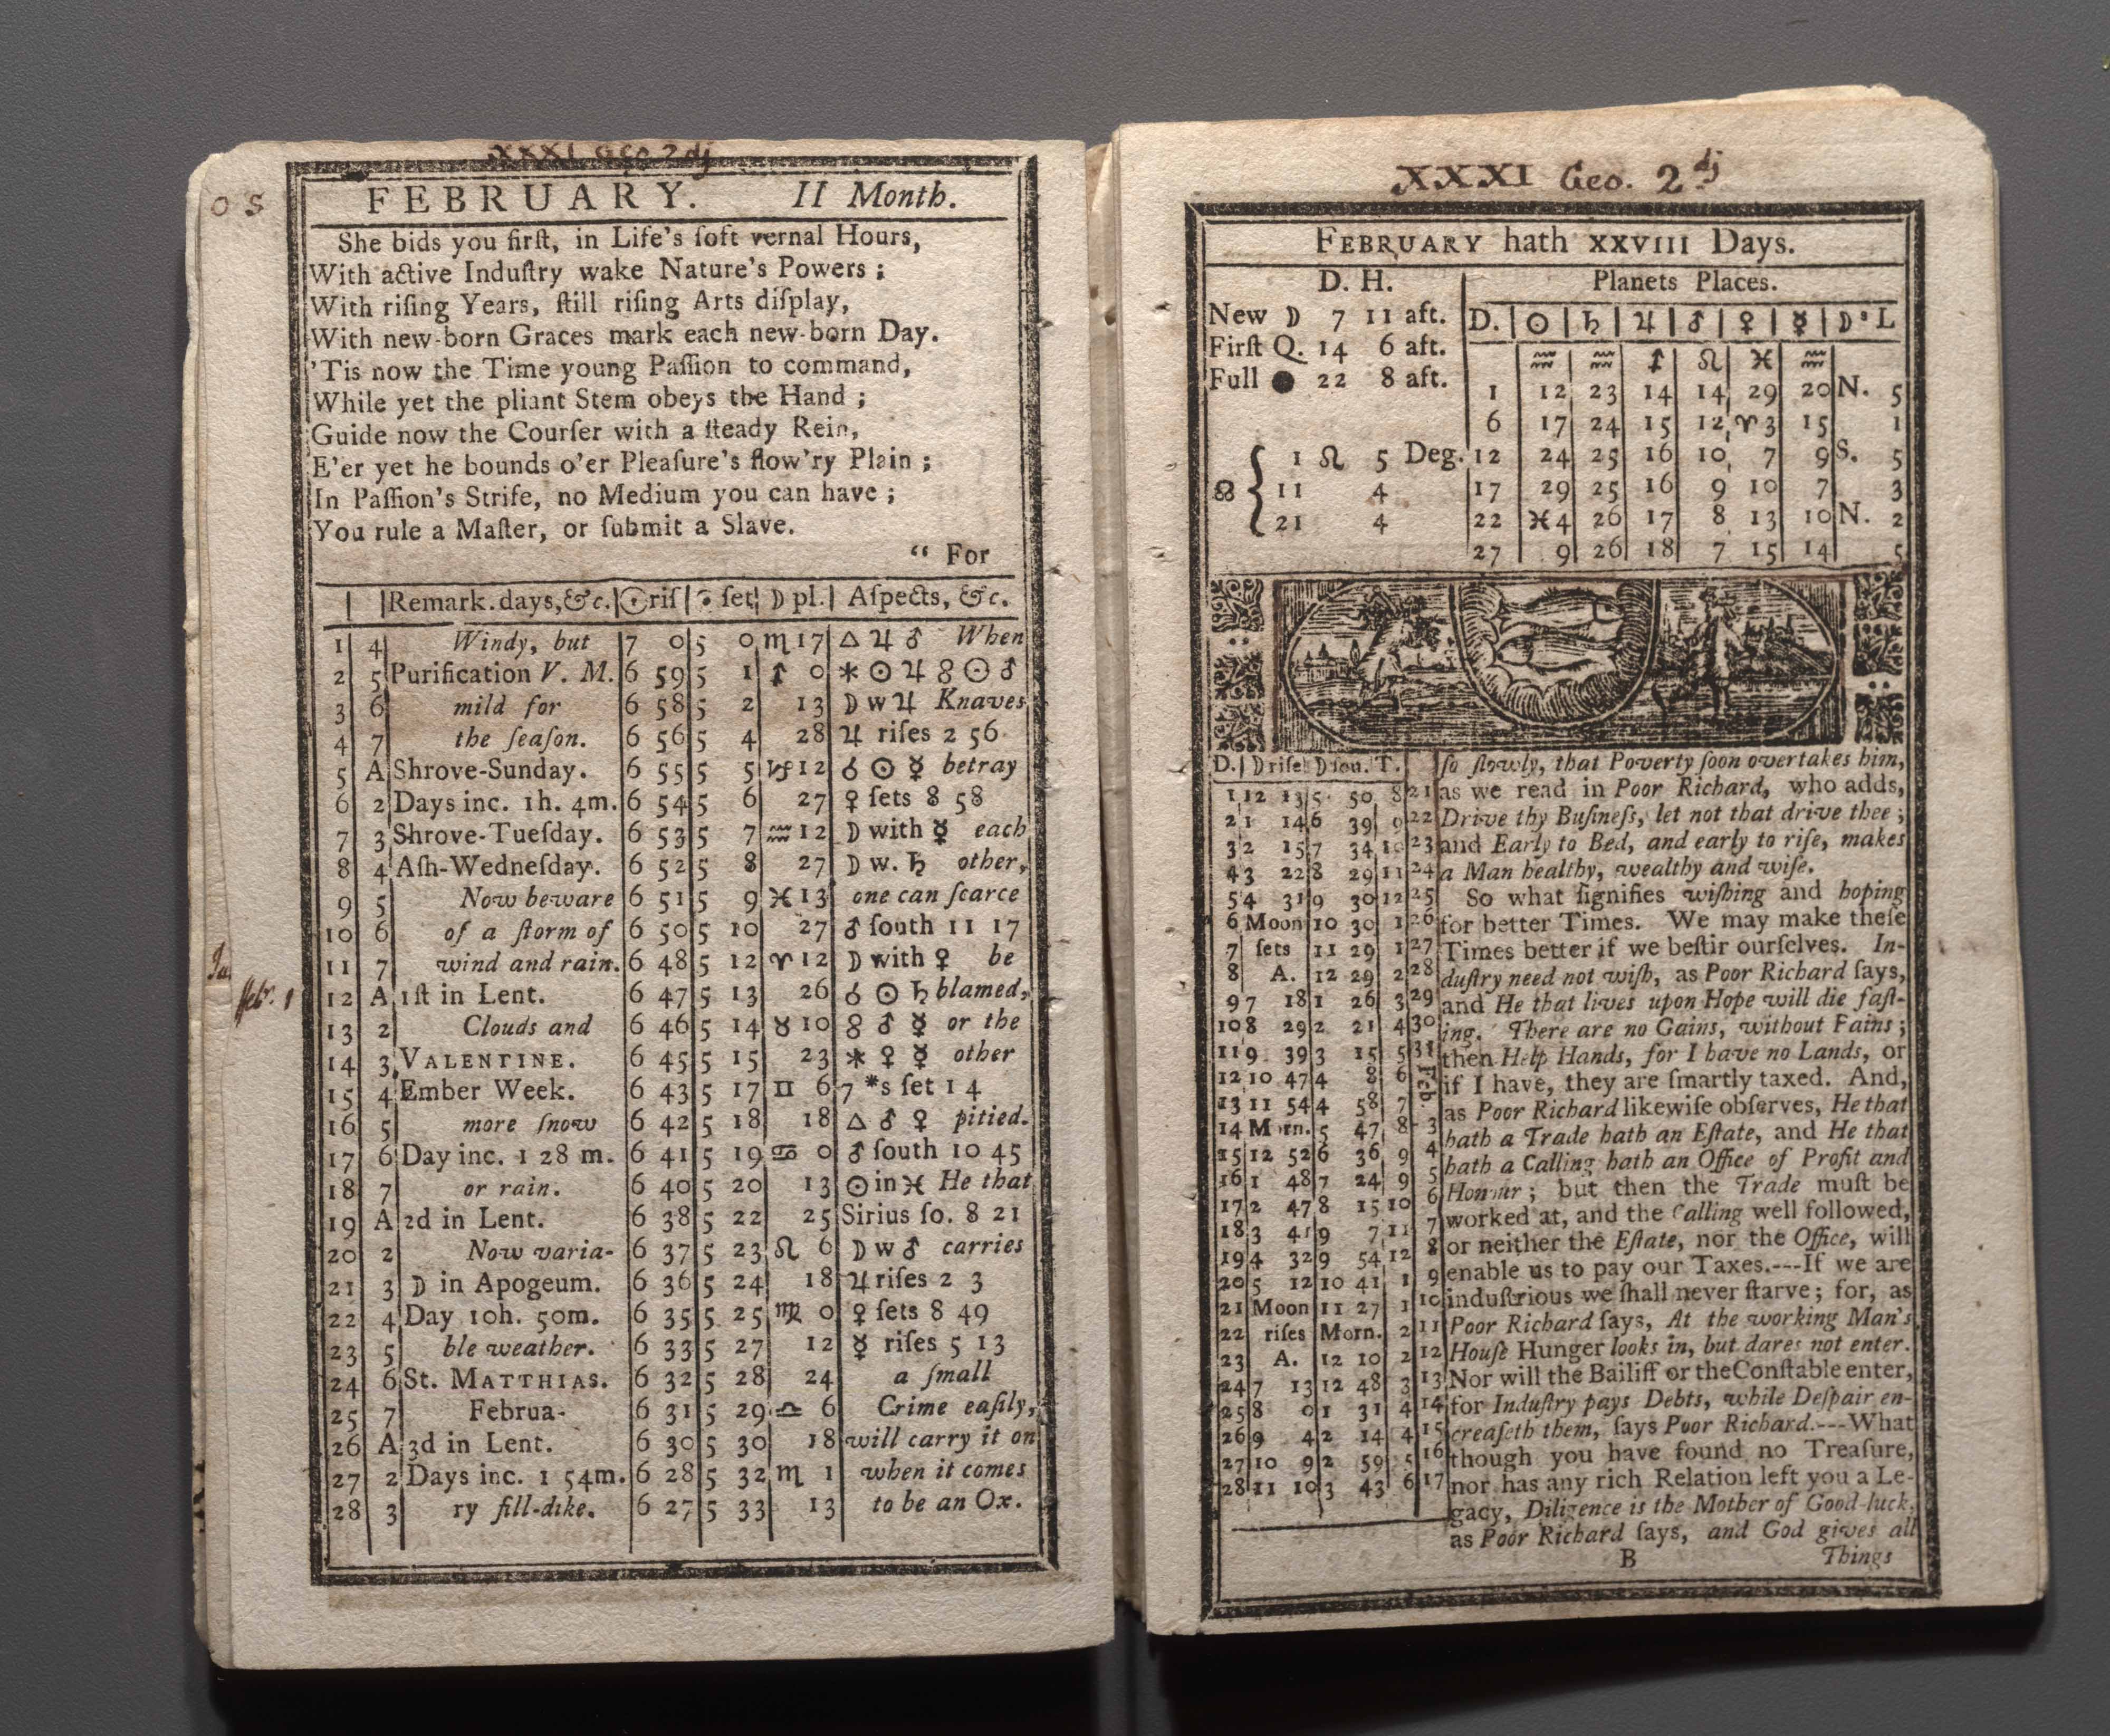 XXXI Geo 2dj
O S
FEBRUARY. II Month.
She bids you firſt, in Life's ſoft vernal Hours,
With active Induſtry wake Nature's Powers ;
With riſing Years, ſtill riſing Arts diſplay,
With new-born Graces mark each new-born Day.
'Tis now the Time young Paſſion to command,
While yet the pliant Stem obeys the Hand ;
Guide now the Courſer with a ſteady Rein,
E'er yet he bounds o'er Pleaſure's flow'ry Plain ;
In Paſſion's Strife, no Medium you can have ;
You rule a Maſter, or ſubmit a Slave.
“ For
Remark. days, &c. ☉ riſ ☉ ſet ☽ pl. Aſpects, &c.
1 4 Windy, but 7 0 5 0 ♏ 17 △ ♃ ♂ When
2 5 Purification V. M. 6 59 5 1 ♐ 0 ⚹ ☉ ♃ ☍ ☉ ♂
3 6 mild for 6 58 5 2 13 ☽ w ♃ Knaves
4 7 the ſeaſon. 6 56 5 4 28 ♃ riſes 2 56
5 A Shrove-Sunday. 6 55 5 5 ♑ 12 ☌ ☉ ☿ betray
6 2 Days inc. 1h. 4m. 6 54 5 6 27 ♀ ſets 8 58
7 3 Shrove-Tueſday. 6 53 5 7 ♒ 12 ☽ with ☿ each
8 4 Aſh-Wedneſday. 6 52 5 8 27 ☽ w. ♄ other,
9 5 Now beware 6 51 5 9 ♓ 13 one can ſcarce
10 6 of a ſtorm of 6 50 5 10 27 ♂ ſouth 11 17
11 7 wind and rain. 6 48 5 12 ♈ 12 ☽ with ♀ be
febr. 1
12 A 1ſt in Lent. 6 47 5 13 26 ☌ ☉ ♄ blamed,
13 2 Clouds and 6 46 5 14 ♉ 10 ☍ ♂ ☿ or the
14 3 VALENTINE. 6 45 5 15 23 ⚹ ♀ ☿ other
15 4 Ember Week. 6 43 5 17 ♊ 6 7 *s ſet 1 4
16 5 more ſnow 6 42 5 18 18 △ ♂ ♀ pitied.
17 6 Day inc. 1 28 m. 6 41 5 19 ♋ 0 ♂ ſouth 10 45
18 7 or rain. 6 40 5 20 13 ☉ in ♓ He that
19 A 2d in Lent. 6 38 5 22 25 Sirius ſo. 8 21
20 2 Now varia- 6 37 5 23 ♌ 6 ☽ w ♂ carries
21 3 ☽ in Apogeum. 6 36 5 24 18 ♃ riſes 2 3
22 4 Day 10h. 50m. 6 35 5 25 ♍ 0 ♀ ſets 8 49
23 5 ble weather. 6 33 5 27 12 ☿ riſes 5 13
24 6 St. MATTHIAS. 6 32 5 28 24 a ſmall
25 7 Februa- 6 31 5 29 ♎ 6 Crime eaſily,
26 A 3d in Lent. 6 30 5 30 18 will carry it on
27 2 Days inc. 1 54m. 6 28 5 32 ♏ 1 when it comes
28 3 ry fill-dike. 6 27 5 33 13 to be an Ox.
XXXI Geo. 2dj
FEBRUARY hath XXVIII Days.
D. H.
New ☽ 7 11 aft.
Firſt Q. 14 6 aft.
Full ● 22 8 aft.
☊ { 1 ♌ 5 Deg.
11 4
21 4
Planets Places.
D. ☉ ♄ ♃ ♂ ♀ ☿ ☽'s L
♒ ♒ ♐ ♌ ♓ ♒
1 12 23 14 14 29 20 N. 5
6 17 24 15 12 ♈ 3 15 1
12 24 25 16 10 7 9 S. 5
17 29 25 16 9 10 7 3
22 ♓ 4 26 17 8 13 10 N. 2
27 9 26 18 7 15 14 5
D. ☽ riſe ☽ ſou. T.
1 12 13 5 50 8 21
2 1 14 6 39 9 22
3 2 15 7 34 10 23
4 3 22 8 29 11 24
5 4 31 9 30 12 25
6 Moon 10 30 1 26
7 ſets 11 29 1 27
8 A. 12 29 2 28
9 7 18 1 26 3 29
10 8 29 2 21 4 30
11 9 39 3 15 5 31
12 10 47 4 8 6 Feb.
13 11 54 4 58 7
14 Morn. 5 47 8 3
15 12 52 6 36 9 4
16 1 48 7 24 9 5
17 2 47 8 15 10 6
18 3 41 9 7 11 7
19 4 32 9 54 12 8
20 5 12 10 41 1 9
21 Moon 11 27 1 10
22 riſes Morn. 2 11
23 A. 12 10 2 12
24 7 13 12 48 3 13
25 8 0 1 31 4 14
26 9 4 2 14 4 15
27 10 9 2 59 5 16
28 11 10 3 43 6 17
ſo ſlowly, that Poverty ſoon overtakes him,
as we read in Poor Richard, who adds,
Drive thy Buſineſs, let not that drive thee ;
and Early to Bed, and early to riſe, makes
a Man healthy, wealthy and wiſe.
So what ſignifies wiſhing and hoping
for better Times. We may make theſe
Times better if we beſtir ourſelves. In-
duſtry need not wiſh, as Poor Richard ſays,
and He that lives upon Hope will die faſt-
ing. There are no Gains, without Pains ;
then Help Hands, for I have no Lands, or
if I have, they are ſmartly taxed. And,
as Poor Richard likewiſe obſerves, He that
hath a Trade hath an Eſtate, and He that
hath a Calling hath an Office of Profit and
Honour ; but then the Trade muſt be
worked at, and the Calling well followed,
or neither the Eſtate, nor the Office, will
enable us to pay our Taxes.---If we are
induſtrious we ſhall never ſtarve ; for, as
Poor Richard ſays, At the working Man's
Houſe Hunger looks in, but dares not enter.
Nor will the Bailiff or the Conſtable enter,
for Induſtry pays Debts, while Deſpair en-
creaſeth them, ſays Poor Richard.---What
though you have found no Treaſure,
nor has any rich Relation left you a Le-
gacy, Diligence is the Mother of Good-luck,
as Poor Richard ſays, and God gives all
B Things